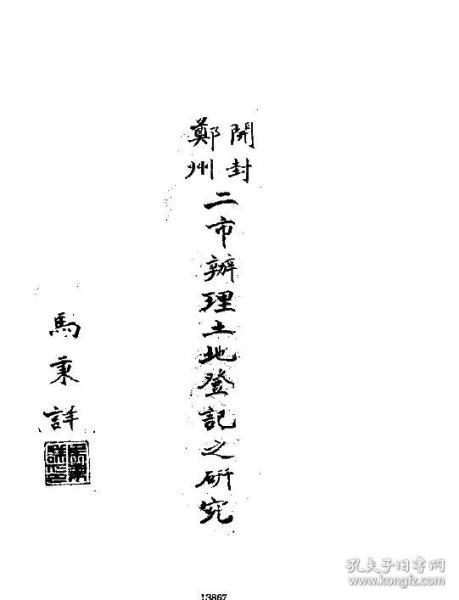 開封
鄭州
二市辦理土地登記之研究
馬秉詳
13867
孔夫子旧书网